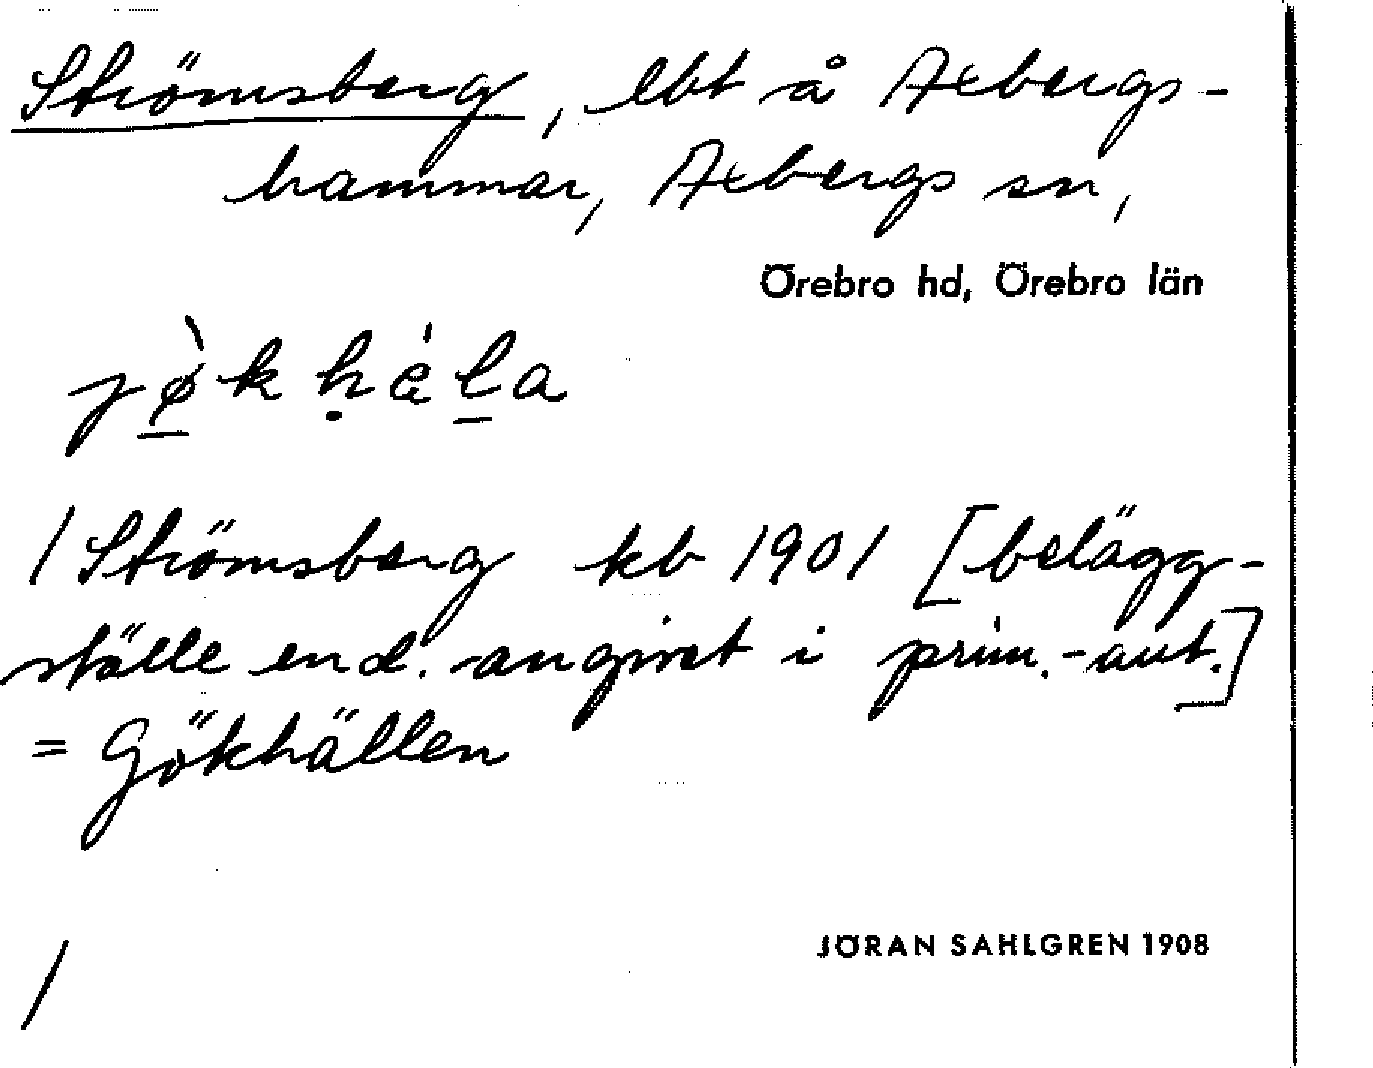 Strömsberg, lbt å Axbergs-
hammar, Axbergs sn,
Örebro hd, Örebro län
/ Strömsberg kb 1901 [belägg-
ställe end. angivet i prim.-aut.]
= Gökhällen
/
JÖRAN SAHLGREN 1908